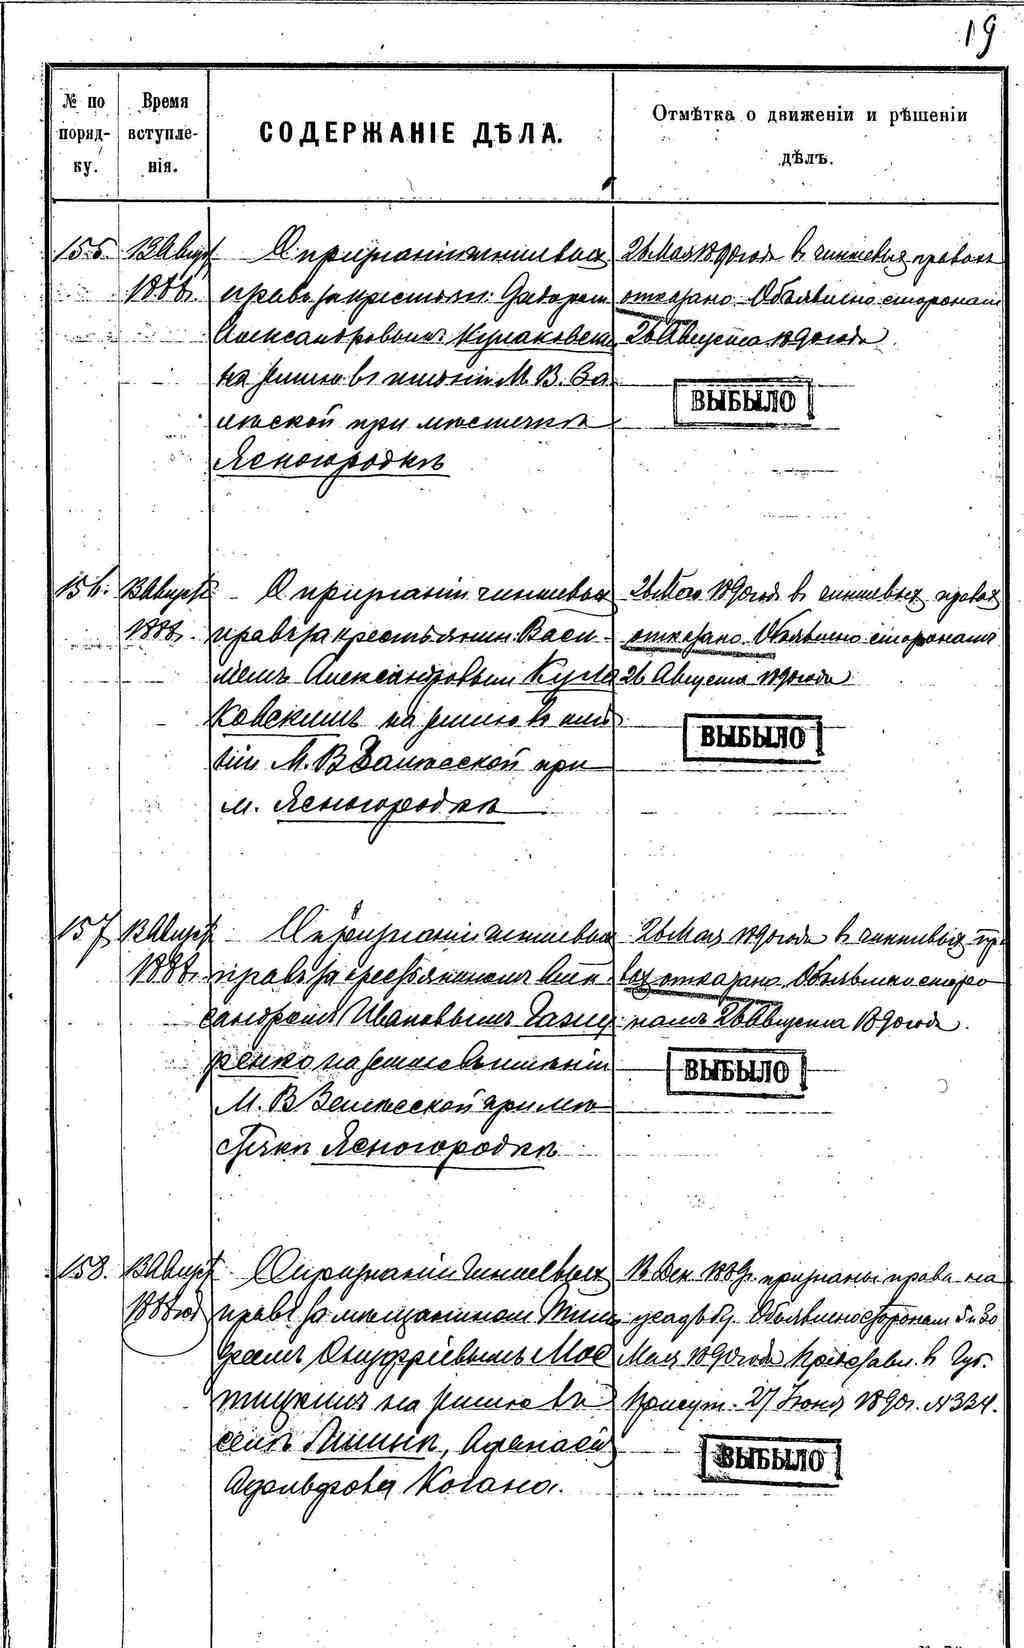 19
№ по порядку.
Время вступленія.
СОДЕРЖАНІЕ ДѢЛА.
Отмѣтка о движеніи и рѣшеніи дѣлъ.
155. 13 Августа 1888.
О признаніи чиншевыхъ
правъ за крестьян.
Александровымъ Кулаковским
на землю въ имѣніи М. В. За
лѣской при мѣстечкѣ
Ясногородкѣ
26 Мая 1890 года въ чиншевыхъ правахъ
отказано. Объявлено сторонамъ
26 Августа 1890 года.
ВЫБЫЛО
156. 13 Августа 1888.
О признаніи чиншевыхъ
правъ за крестьянин. Васи-
лемъ Александровым Кула
ковскимъ на землю въ имѣ
ніи М. В. Залѣсской при
м. Ясногородкѣ
26 Мая 1890 года въ чиншевыхъ правахъ
отказано. Объявлено сторонамъ
26 Августа 1890 года
ВЫБЫЛО
157. 13 Августа 1888.
О признаніи чиншевыхъ
правъ за крестьянином Алек-
сандромъ Ивановымъ
на землю въ имѣніи
М. В. Залѣсской при мѣ
стечкѣ Ясногородкѣ
26 Мая 1890 года въ чиншевыхъ пра
вах отказано. Объявлено сторо
намъ 26 Августа 1890 года.
ВЫБЫЛО
158. 13 Августа 1888 год
О признаніи чиншевыхъ
правъ за мѣщанином Тимо
Онуфріевымъ
на землю въ
селѣ
Адольфова Когана.
13 Дек. 1889г. признаны права на
усадьбу. Объявлено сторонам 5 и 30
Мая 1890 года. въ Губ.
Присут. 27 Іюня 1890г. № 334.
ВЫБЫЛО